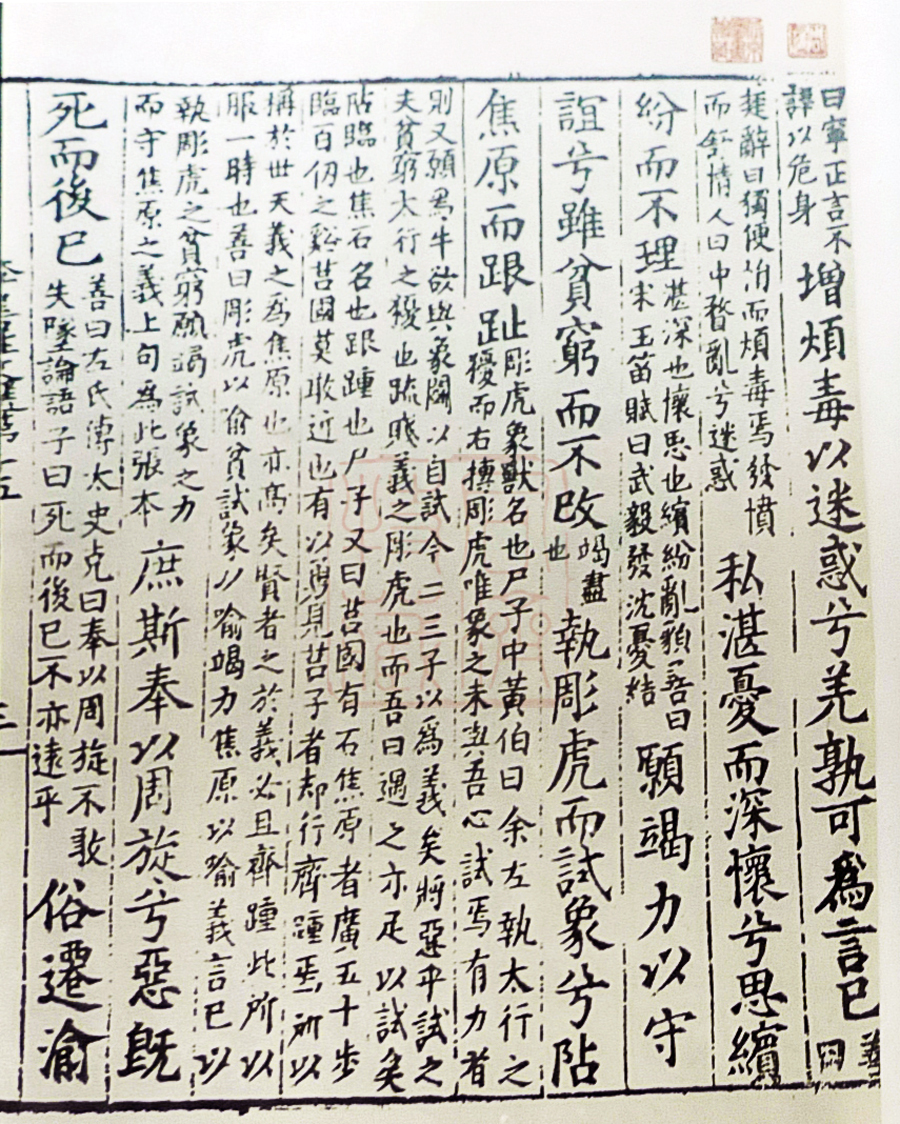 曰寧正言不
諱以危身
增煩毒以迷惑兮羌孰可爲言已
善
曰
楚辭曰獨便悁而煩毒焉發憤
而舒情人曰中瞀亂兮迷惑
私湛憂而深懷兮思繽
紛而不理
湛深也懷思也繽紛亂貌善曰
宋玉笛賦曰武毅發沈憂結
願竭力以守
誼兮雖貧窮而不改
竭盡
也
執彫虎而試象兮阽
焦原而跟趾
彫虎象獸名也尸子中黃伯曰余左執太行之
獶而右搏彫虎唯象之未與吾心試焉有力者
則又願爲牛欲與象鬭以自試今二三子以爲義矣將惡乎試之
夫貧窮大行之獶也疏賤義之彫虎也而吾日遇之亦足以試矣
阽臨也焦石名也跟踵也尸子又曰莒國有石焦原者廣五十步
臨百仞之谿莒國莫敢近也有以勇見莒子者却行齊踵焉所以
稱於世天義之爲焦原也亦高矣賢者之於義必且齊踵此所以
服一時也善曰彫虎以喻貧試象以喻竭力焦原以喻義言已以
執彫虎之貧窮願竭試象之力
而守焦原之義上句爲此張本
庶斯奉以周旋兮惡既
死而後已
善曰左氏傳太史克曰奉以周旋不敢
失墜論語子曰死而後已不亦遠乎
俗遷渝